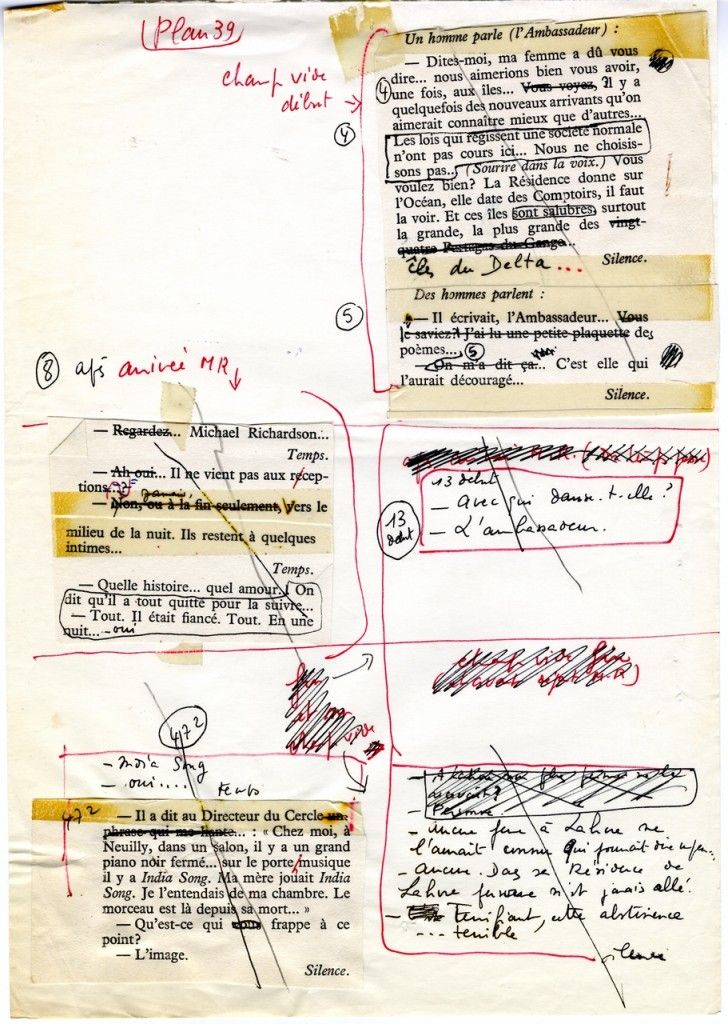 Plan 39
champ vide
début →
④
Un homme parle (l'Ambassadeur) :
— Dites-moi, ma femme a dû vous
dire... nous aimerions bien vous avoir,
④ une fois, aux îles... Vous voyez, Il y a
quelquefois des nouveaux arrivants qu'on
aimerait connaître mieux que d'autres...
Les lois qui régissent une société normale
n'ont pas cours ici... Nous ne choisis-
sons pas.. (Sourire dans la voix.) Vous
voulez bien? La Résidence donne sur
l'Océan, elle date des Comptoirs, il faut
la voir. Et ces îles sont salubres, surtout
la grande, la plus grande des vingt-
quatre Partages du Gange...
îles du Delta...
Silence.
⑤
Des hommes parlent :
— Il écrivait, l'Ambassadeur... Vous
le saviez? J'ai lu une petite plaquette des
poèmes... ⑤
— On m'a dit ça... C'est elle qui
l'aurait découragé...
Silence.
⑧ aps arrivée MR
— Regardez... Michael Richardson...
Temps.
— Ah oui... Il ne vient pas aux récep-
tions...
jamais,
— Non, ou à la fin seulement, vers le
milieu de la nuit. Ils restent à quelques
intimes...
Temps.
— Quelle histoire... quel amour... On
dit qu'il a tout quitté pour la suivre...
— Tout. Il était fiancé. Tout. En une
nuit... - oui
13
début
13 début
— Avec qui danse-t-elle?
— L'ambassadeur.
472
— India Song
— oui....
temps
472
— Il a dit au Directeur du Cercle une
phrase qui me hante... : « Chez moi, à
Neuilly, dans un salon, il y a un grand
piano noir fermé... sur le porte-musique
il y a India Song. Ma mère jouait India
Song. Je l'entendais de ma chambre. Le
morceau est là depuis sa mort... »
— Qu'est-ce qui vous frappe à ce
point?
— L'image.
Silence.
— Personne.
— Aucune femme à Lahore ne
l'aurait connu qui pourrait dire
— aucune. Dans sa Résidence de
Lahore personne n'est jamais allé.
— Terrifiant, cette abstinence
... terrible
silence